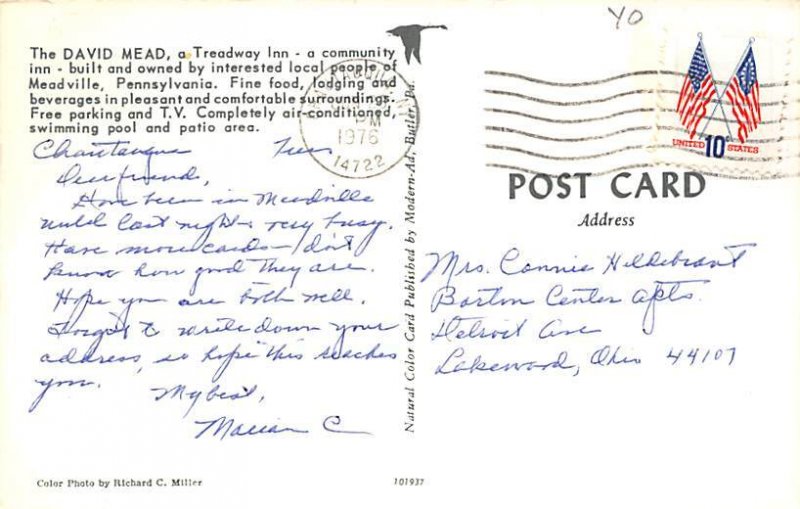 The DAVID MEAD, a Treadway Inn - a community
inn - built and owned by interested local people of
Meadville, Pennsylvania. Fine food, lodging and
beverages in pleasant and comfortable surroundings.
Free parking and T.V. Completely air-conditioned,
swimming pool and patio area.
Chautauqua Tues
Dear friend,
Have been in Meadville
until last night - very busy.
Have more cards - don't
know how good they are.
Hope you are both well.
Forgot to write down your
address, so hope this reaches
you.
My best,
Marian C
Color Photo by Richard C. Miller
Natural Color Card Published by Modern-Ad, Butler, Pa.
101937
YO
PM
1976
14722
UNITED 10c STATES
POST CARD
Address
Mrs. Connie Hildebrant
Barton Center Apts.
Detroit Ave
Lakewood, Ohio 44107